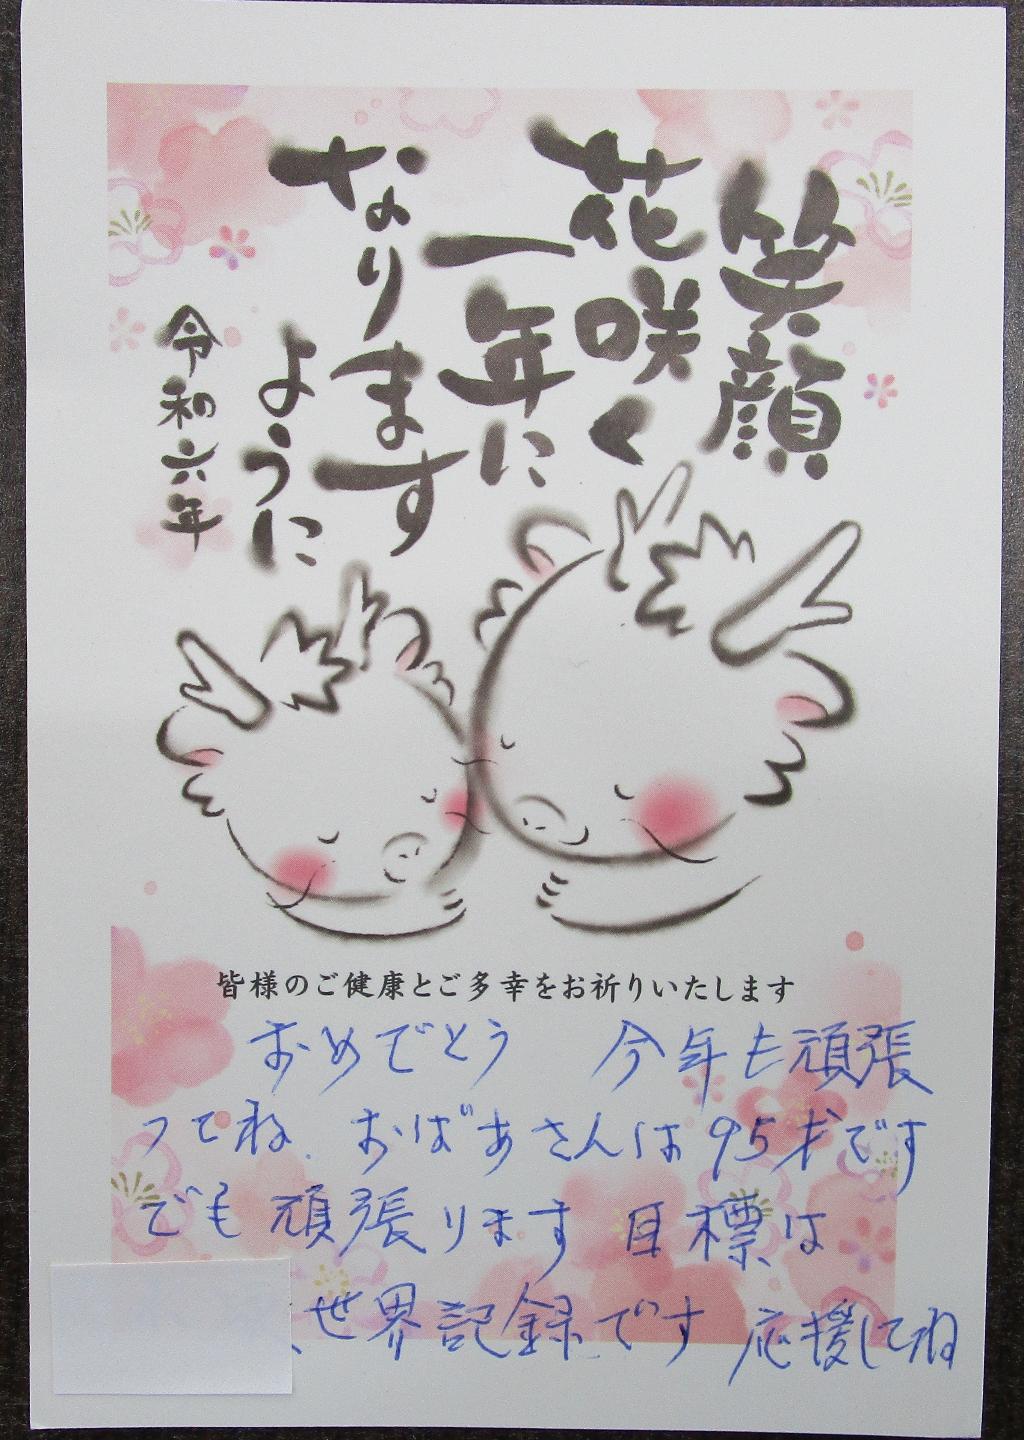 笑顔
花咲く
一年に
なります
ように
令和六年
皆様のご健康とご多幸をお祈りいたします
おめでとう 今年も頑張
ってね、おばあさんは95才です
でも頑張ります 目標は
世界記録です 応援してね